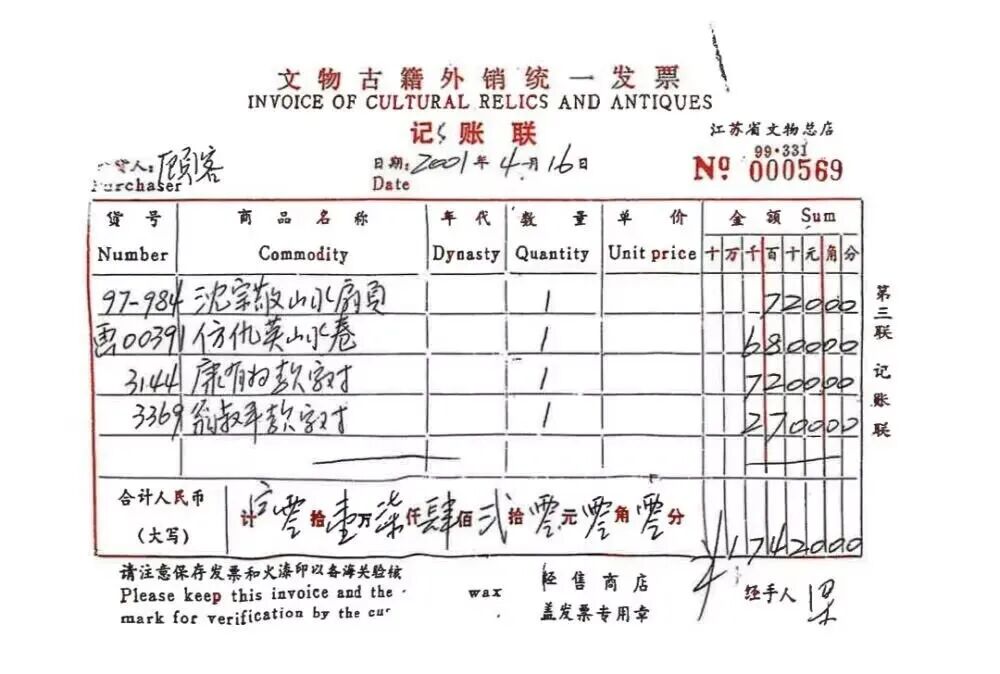 文物古籍外销统一发票
INVOICE OF CULTURAL RELICS AND ANTIQUES
记账联
江苏省文物总店
99·331
货人: 顾客
Purchaser
日期: 2001年4月16日
Date
Nº 000569
货号 商品名称 年代 数量 单价 金额 Sum
Number Commodity Dynasty Quantity Unit price 十万千百十元角分
97-984 沈宗敬山水扇页 1 72000
画00391 仿仇英山水卷 1 680000
3144 康有为款字对 1 720000
3369 翁叔平款字对 1 270000
合计人民币
(大写)
计零拾壹万柒仟肆佰贰拾零元零角零分
¥1742000
第三联 记账联
请注意保存发票和火漆印以备海关验核
Please keep this invoice and the wax
mark for verification by the cus
经售商店
盖发票专用章
经手人